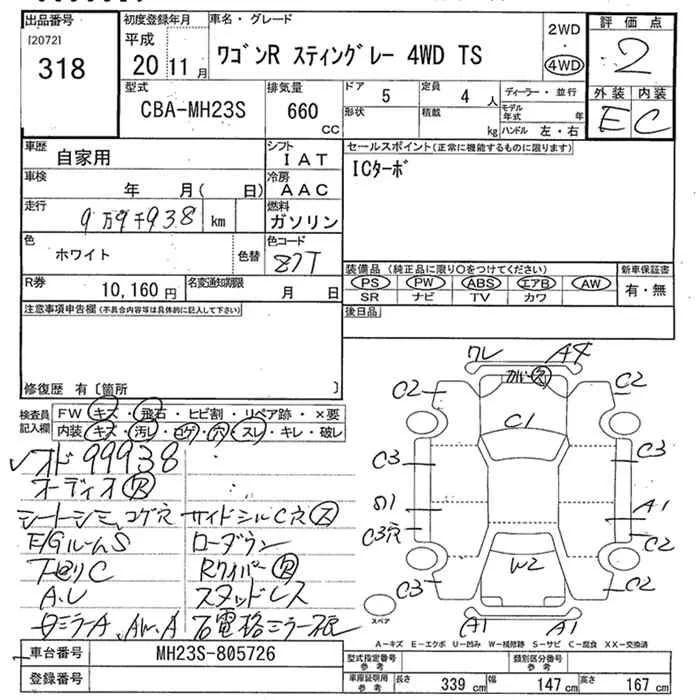 出品番号
[2072]
318
初度登録年月
平成
20 11 月
車名・グレード
ワゴンR スティングレー 4WD TS
2WD
・
4WD
評価点
2
外装 内装
E C
型式
CBA-MH23S
排気量
660
CC
ドア
5
定員
4 人
ディーラー・並行
形状
積載
kg
モデル年式 年
ハンドル 左・右
車歴
自家用
シフト
IAT
セールスポイント(正常に機能するものに限ります)
ICターボ
車検
年 月( 日)
冷房
AAC
走行
9万9千938 km
燃料
ガソリン
色
ホワイト
色替
色コード
Z7T
装備品 (純正品に限り○をつけてください)
PS PW ABS エアB AW
SR ナビ TV カワ
新車保証書
有・無
R券
10,160 円
名変通知期限
月 日
後日品
注意事項申告欄(不具合内容等は具体的に記入して下さい)
修復歴 有 [箇所 ]
検査員記入欄
FW キズ・飛石・ヒビ割・リペア跡・×要
内装 キズ・汚レ・コゲ・穴・スレ・キレ・破レ
オド 99938
オーディオ
シートシミ、コゲ穴 サイドシルC穴
E/GルームS ローダウン
下回リC Rワイパー
A.U スタッドレス
ミラーA、AW.A
ワレ A4
カバー
C2 C2
C1
C3 C3
A1
C3穴 C2
W2
C3 C2
スペア
U1 A1
A-キズ E-エクボ U-凹み W-補修跡 S-サビ C-腐食 XX-交換済
車台番号
MH23S-805726
登録番号
型式指定番号 参考
類別区分番号 参考
車庫証明用 参考
長さ 339 cm
幅 147 cm
高さ 167 cm